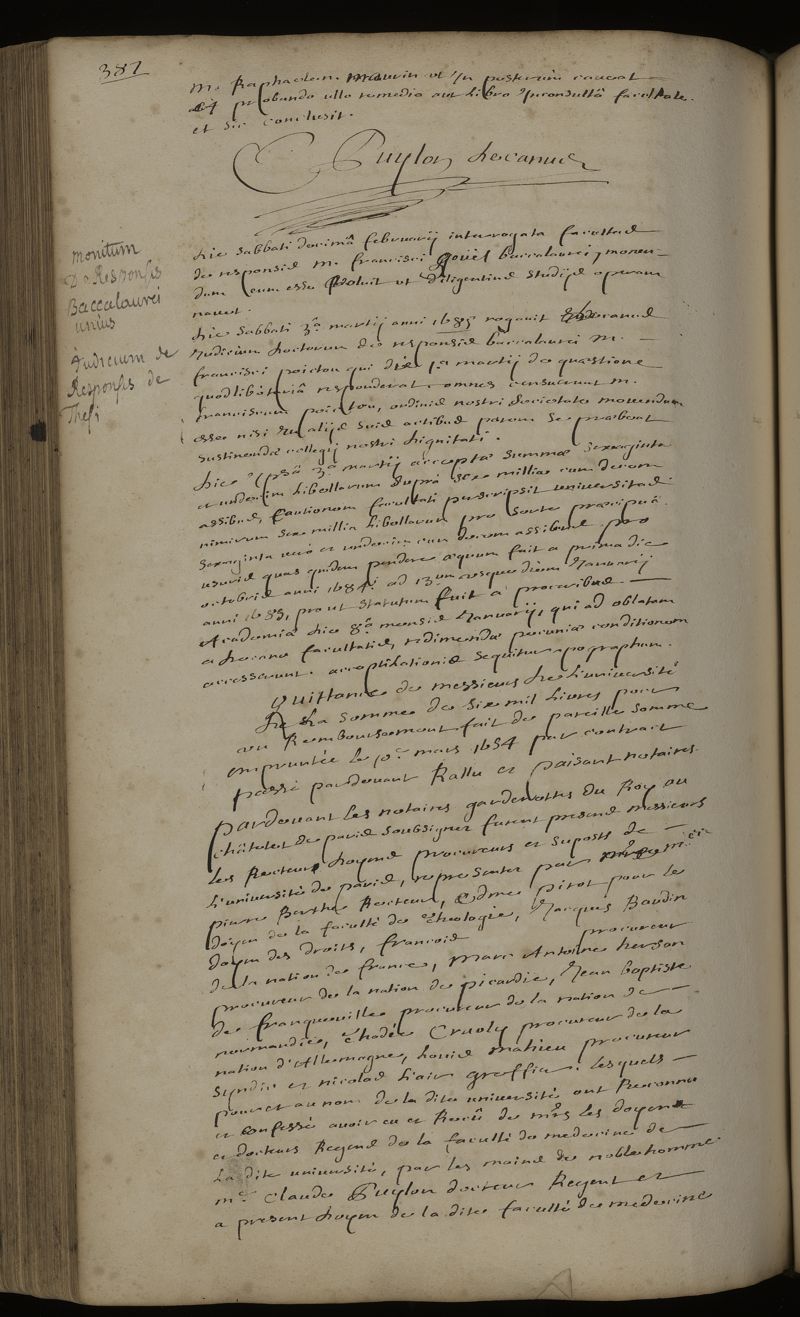 382
M. Raphaelem Maurin ut in posterum caveat
a probando ullo remedio aut Libro inconsultâ facultate.
et sic conclusit.
Puylon decanus
monitum
De Responsis
Baccalaurei
unius
Die Sabbati decimâ februarij interrogata facultas
de responsis M. francisci Baccalaurei, monen-
dum eum esse voluit ut diligentius studijs operam
navet.
Judicium de
Responsis de
Thesi
Die Sabbati 3ª martij anni 1685 rogavit Decanus
Judicium doctorum de responsis baccalaurei M.
francisci poictou qui die 1ª martij de quæstione
quodlibetariâ responderat, omnes censuerunt M.
franciscum poictou, ordinis nostri societate movendum
esse nisi in alijs suis actibus parem se præbeat
sustinendæ collegij nostri dignitati.
Die ipsâ 3ª martij accepta summa sexaginta
et undecim libellarum supra sex millia cum decem
assibus, cautionem facultati perscripsit universitas
nimirum sex millia libellarum pro sorte præcipuâ
sexaginta vero et undecim cum decem assibus pro
usuris quas quidem pendere æquum fuit a prima die
octobris anni 1684 ad 13um usque diem Januarij
anni 1685, prout statutum fuit a proceribus
Academiæ die 8ª mensis Januarij, qui ad oblatam
a decano facultatis, redimendæ pecuniæ conditionem
accesserunt. acceptilationis sequitur apographum.
Quittance de messieurs de L'université
De La Somme de Six mil Livres pour
au Remboursement fait de pareille Somme
empruntée le 10e mars 1654 par contract
passé pardevant Rallu et paisant notaires
pardevant Les notaires gardenottes du Roy au
châtelet de paris soubsignez furent presens messieurs
Les Recteur, doyens procureurs et suposts de
L'université de paris, representez par
pierre Berthe Recteur, Edme pirot pour le
doyen de la faculté de theologie, Jacques Baudin
doyen des droits, francois procureur
de la nation de france, Marc Antoine hersan
procureur de la nation de picardie, Jean baptiste
de franqueville procureur de la nation de
normandie, Thadée Cruoly procureur de la
nation d'Allemagne, Louis Mahieu procureur
Syndic et nicolas Lair greffier. Lesquels
pour et au nom de la dite université ont Reconnu
et Confessé avoir eu et Receû de mrs les doyen
et docteurs Regens de la faculté de medecine de
La dite université, par les mains de noble homme
me Claude Puylon docteur Regent et
a present doyen de la dite faculté de medecine